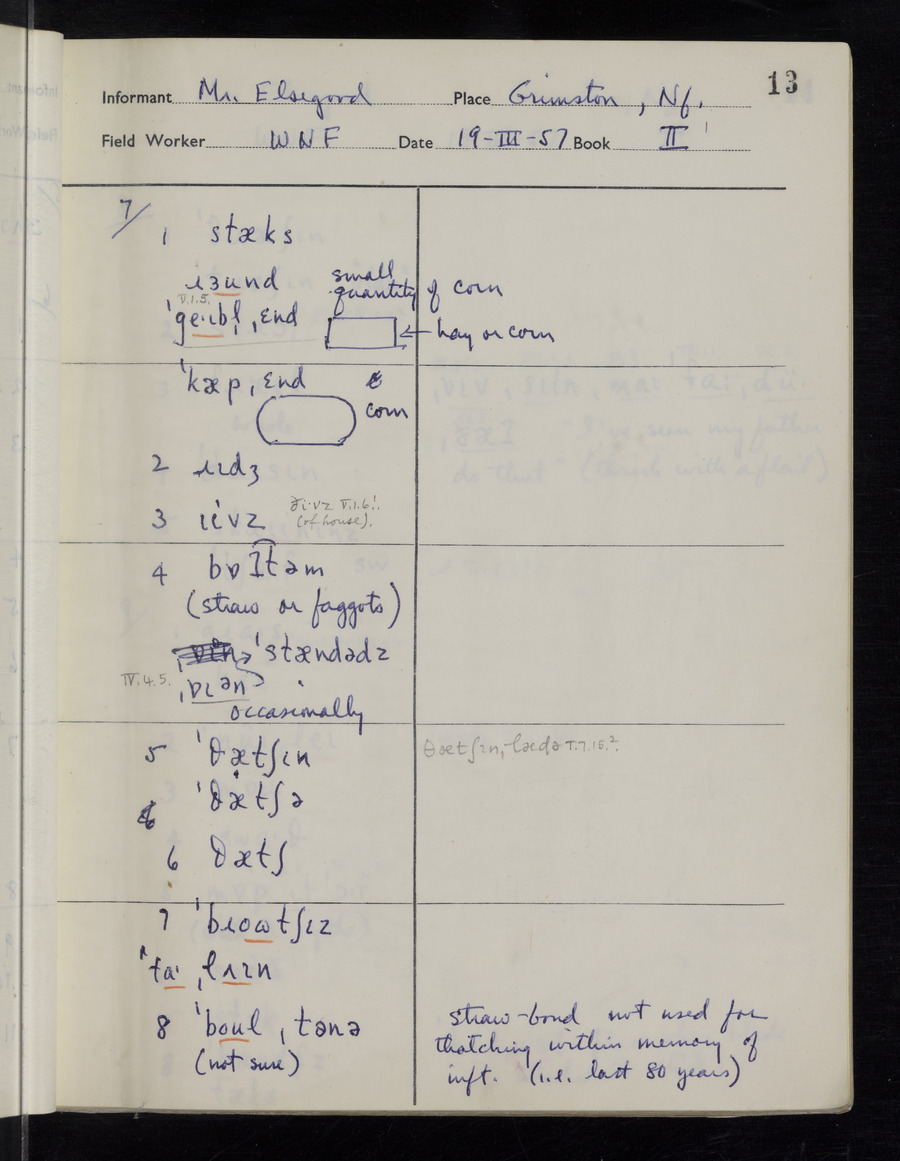 13
Informant Mr. Elsegood Place Grimston, Nf.
Field Worker WNF Date 19-III-57 Book II
7/
1 stæks
ɹɜund small quantity of corn
V.1.5.
ˈgeɪbl̩ ˌɛnd ← hay or corn
ˈkæp ˌɛnd
corn
2 ɹɪdʒ
3
(of house).
4
(straw or faggots)
ˈstændədz
IV.4.5.
occasionally
5 ˈθætʃɪn
ˈθætʃə
6 θætʃ
7 ˈbɹɒωtʃɪz
8 ˈboul ˌtənə
(not sure)
straw-bond not used for
thatching within memory of
inft. (i.e. last 80 years)